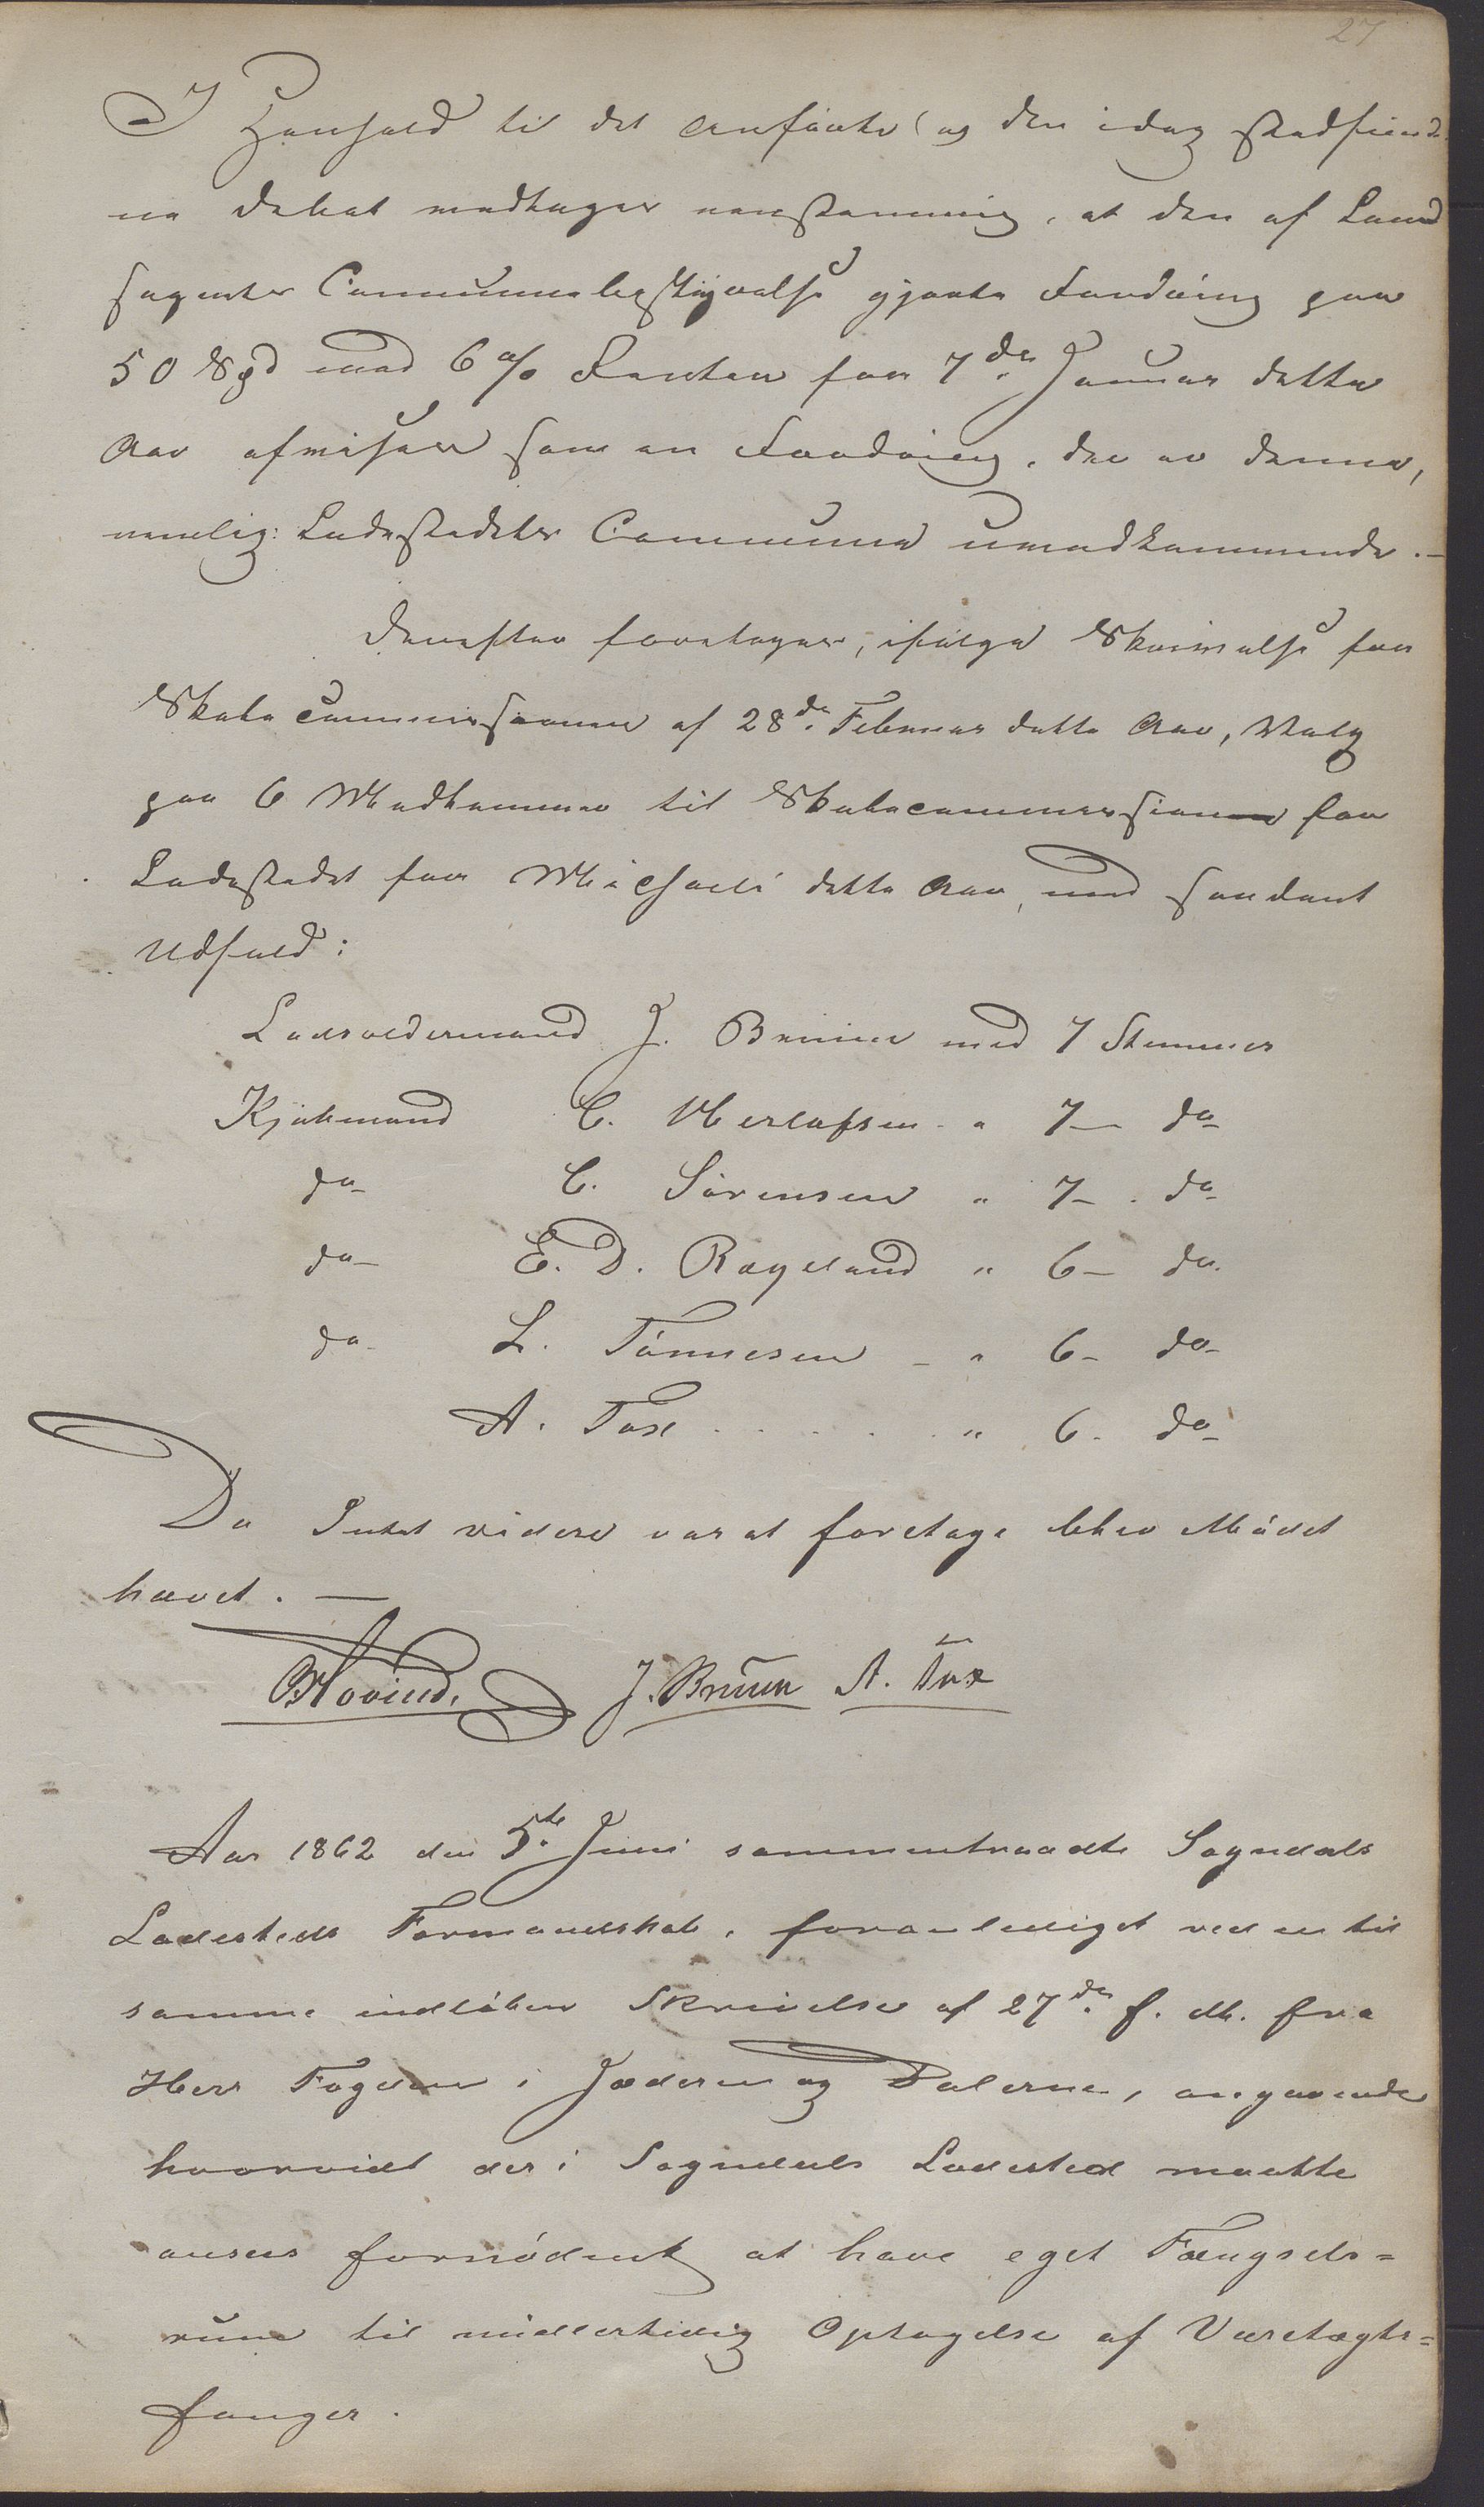 27
I Henhold til det Anførte og den idag stedfund-
ne Debat vedtages eenstemmig, at den af Land
sognets Communebestyrelse gjorte Fordring paa
50 Spd med 6 % Renter fra 7de Januar dette
Aar afvises som en Fordring, der er denne,
nemlig: Ladestedets Commune uvedkommende. —
Derefter foretoges, ifølge Skrivelse fra
Skatecommissionen af 28de Februar dette Aar, Valg
paa 6 Medlemmer til Skatecommissionen for
Ladestedet for Michaeli dette Aar, med saadant
Udfald:
Lodsoldermand J. Bruun med 7 Stemmer
Kjøbmand C. " 7 — do
do C. Sørensen " 7 — do
do E. D. Rægeland " 6 — do
do L. Tønnesen — " 6 — do
A. Tax . . . . . " 6 . do
Da Intet videre var at foretage blev Mødet
hævet. —
Hovind. J. Bruun A. Tax
Aar 1862 den 5te Juni sammentraadte Sogndals
Ladesteds Formandskab, foranlediget ved en til
samme indløben Skrivelse af 27de f. M. fra
Herr Fogden i Jæderen og Dalerne, angaaende
hvorvidt der i Sogndals Ladested maatte
ansees fornødent at have eget Fængsels=
rum til midlertidig Optagelse af Varetægts=
fanger.